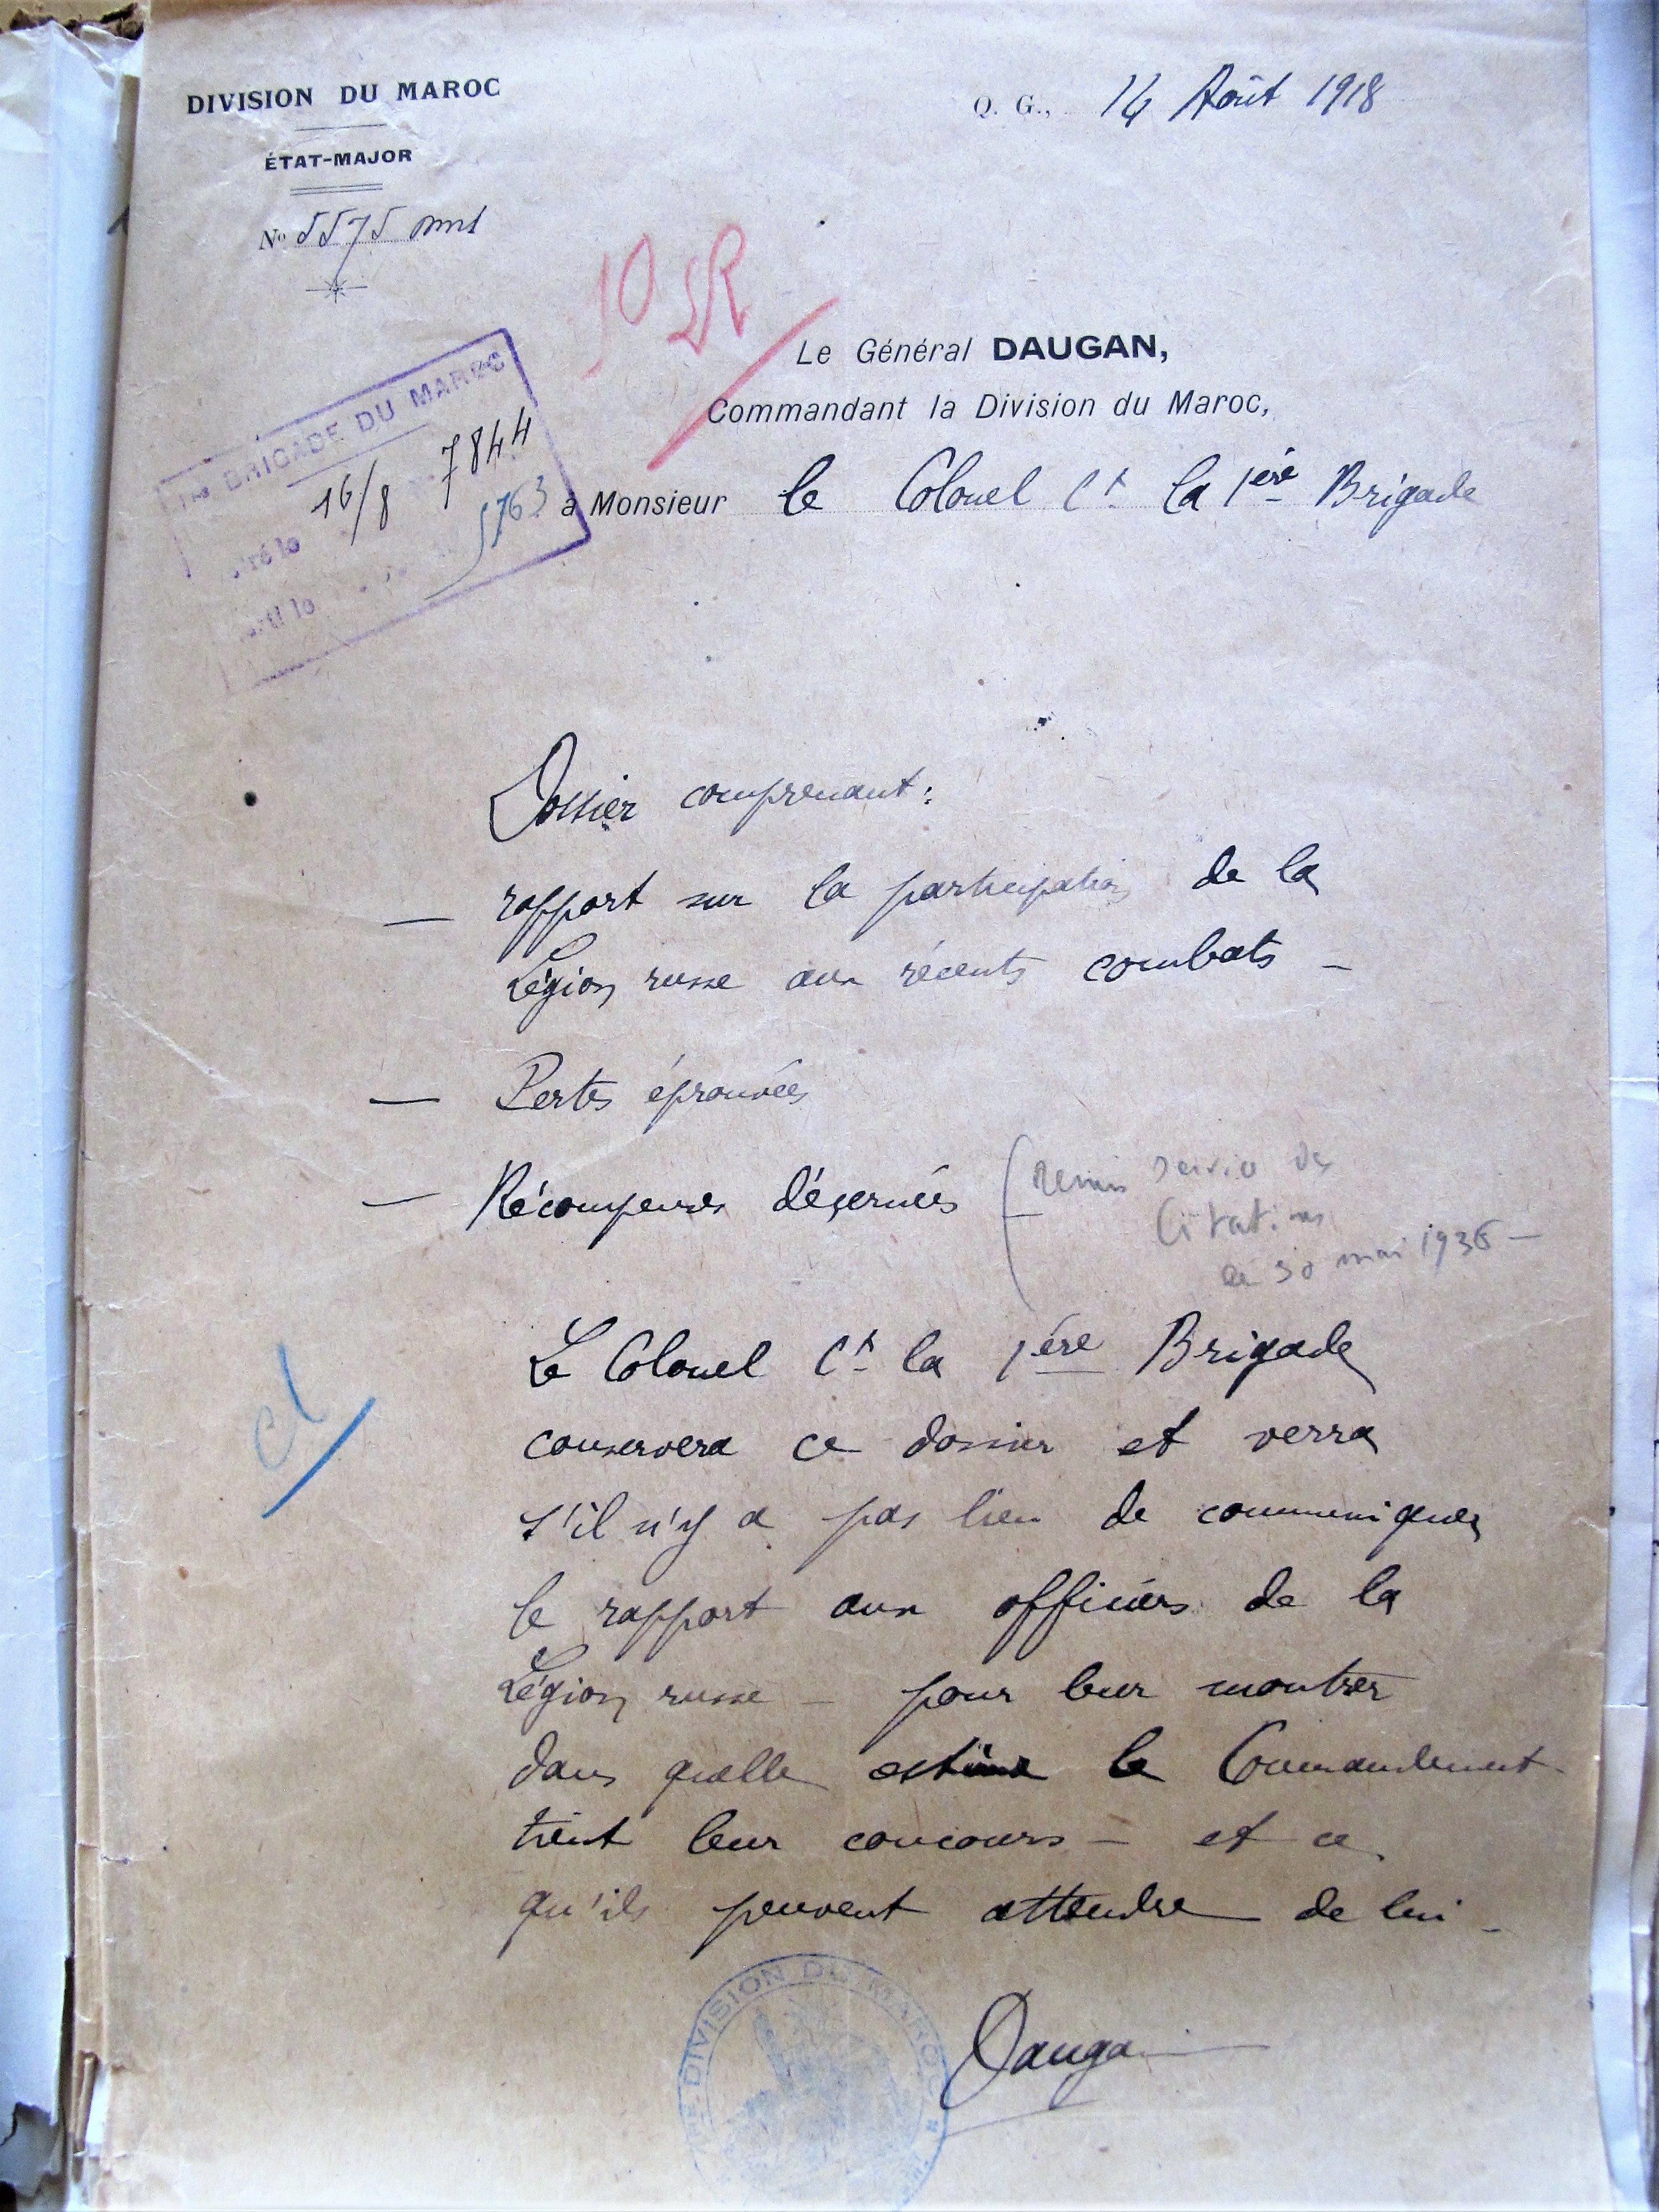 DIVISION DU MAROC
ÉTAT-MAJOR
Nº 5575
Q. G., 14 Août 1918
10 SR
Le Général DAUGAN,
Commandant la Division du Maroc,
1re BRIGADE DU MAROC
16/8 7844
5763
à Monsieur le Colonel Ct la 1ère Brigade
Dossier comprenant :
— rapport sur la participation de la
Légion russe aux récents combats —
— Pertes éprouvées
— Récompenses décernées
(Remis Service des
Citations
le 30 mai 1936 —
Le Colonel Ct la 1ère Brigade
conservera ce dossier et verra
s'il n'y a pas lieu de communiquer
le rapport aux officiers de la
Légion russe — pour leur montrer
dans quelle estime le Commandement
tient leur concours — et ce
qu'ils peuvent attendre de lui —
DIVISION DU MAROC
Daugan